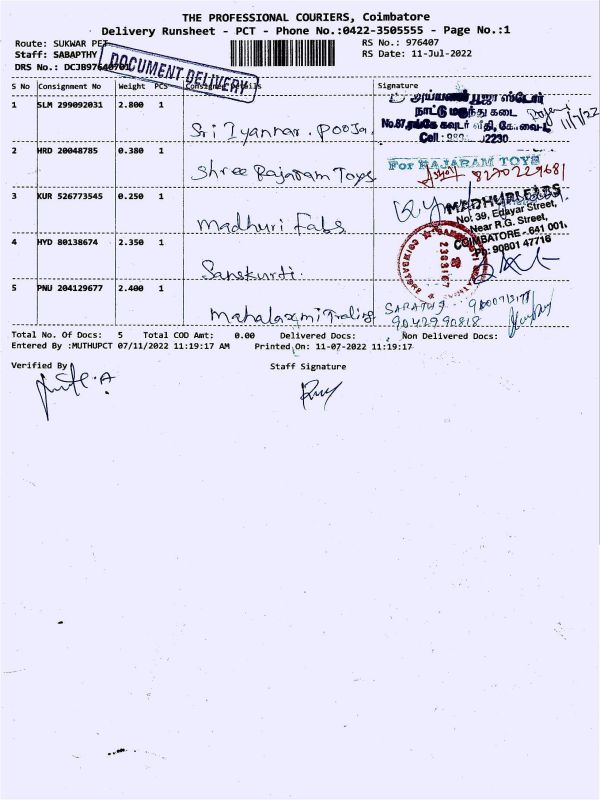 THE PROFESSIONAL COURIERS, Coimbatore
Delivery Runsheet - PCT - Phone No.:0422-3505555 - Page No.:1
Route: SUKWAR PET
RS No.: 976407
Staff: SABAPTHY
RS Date: 11-Jul-2022
DRS No.: DCJB97640701
DOCUMENT DELIVERY
S No Consignment No Weight PCS Consignee Details Signature
1 SLM 299092031 2.800 1 Sri Iyannar. Pooja.
அய்யனார் பூஜா ஸ்டோர்
நாட்டு மருந்து கடை
Cell : 2230
11/7/22
2 HRD 20048785 0.380 1 Shree Rajaram Toys
For RAJARAM TOYS
8270229681
3 KUR 526773545 0.250 1 Madhuri Fabs.
MADHURI FABS
No: 39, Edayar Street,
Near R.G. Street,
COIMBATORE - 641 001.
Ph: 90801 47716
4 HYD 80138674 2.350 1 Sanskurdi.
5 PNU 204129677 2.400 1 Mahalaxmi Trading
SARATHI
9042990818
Total No. Of Docs: 5 Total COD Amt: 0.00 Delivered Docs: Non Delivered Docs:
Entered By :MUTHUPCT 07/11/2022 11:19:17 AM Printed On: 11-07-2022 11:19:17
Verified By Staff Signature